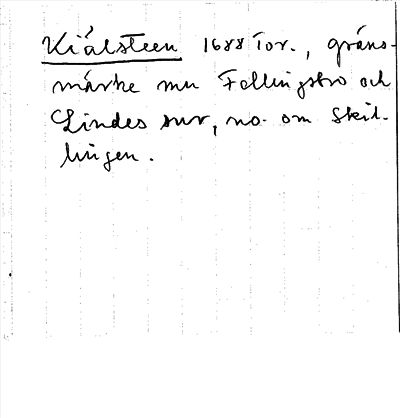 Kiälsteen 1688 Tor., gräns-
märke mn Fellingsbro och
Lindes snr, no. om Skil-
lingen.